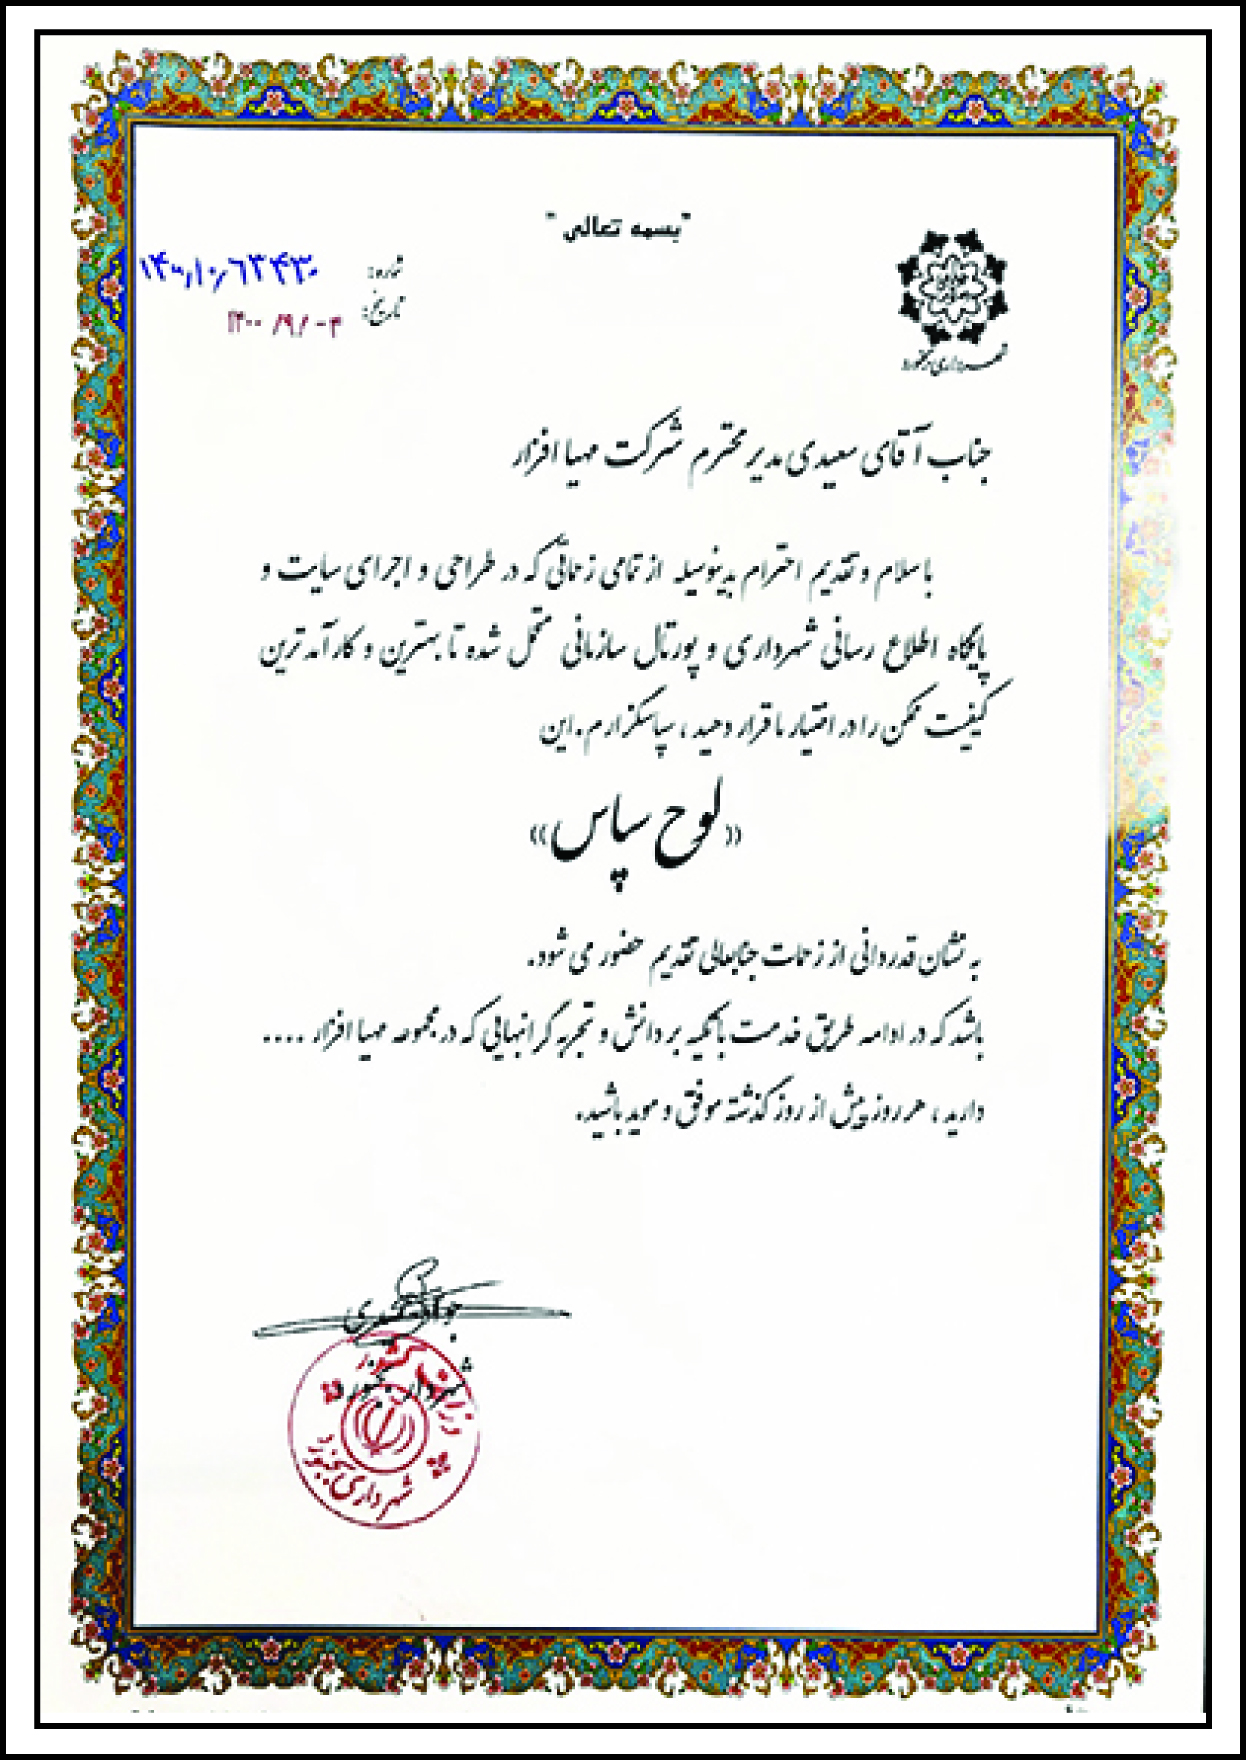 "بسمه تعالی"
شماره: ۱۴۰۰/۱۰/۶۳۴۳۰
تاریخ: ۱۴۰۰/۹/۰۳
شهرداری بجنورد
جناب آقای سعیدی مدیر محترم شرکت مهیا افزار
با سلام و تقدیم احترام بدینوسیله از تمامی زحماتی که در طراحی و اجرای سایت و
پایگاه اطلاع رسانی شهرداری و پورتال سازمانی متحمل شده تا بهترین و کارآمدترین
کیفیت ممکن را در اختیار ما قرار دهید، سپاسگزارم. این
«لوح سپاس»
به نشان قدردانی از زحمات جنابعالی تقدیم حضور می شود.
باشد که در ادامه طریق خدمت با تکیه بر دانش و تجربه گرانبهایی که در مجموعه مهیا افزار ....
دارید، هر روز بیش از روز گذشته موفق و موید باشید.
جواد
شهردار بجنورد
وزارت کشور
شهرداری بجنورد